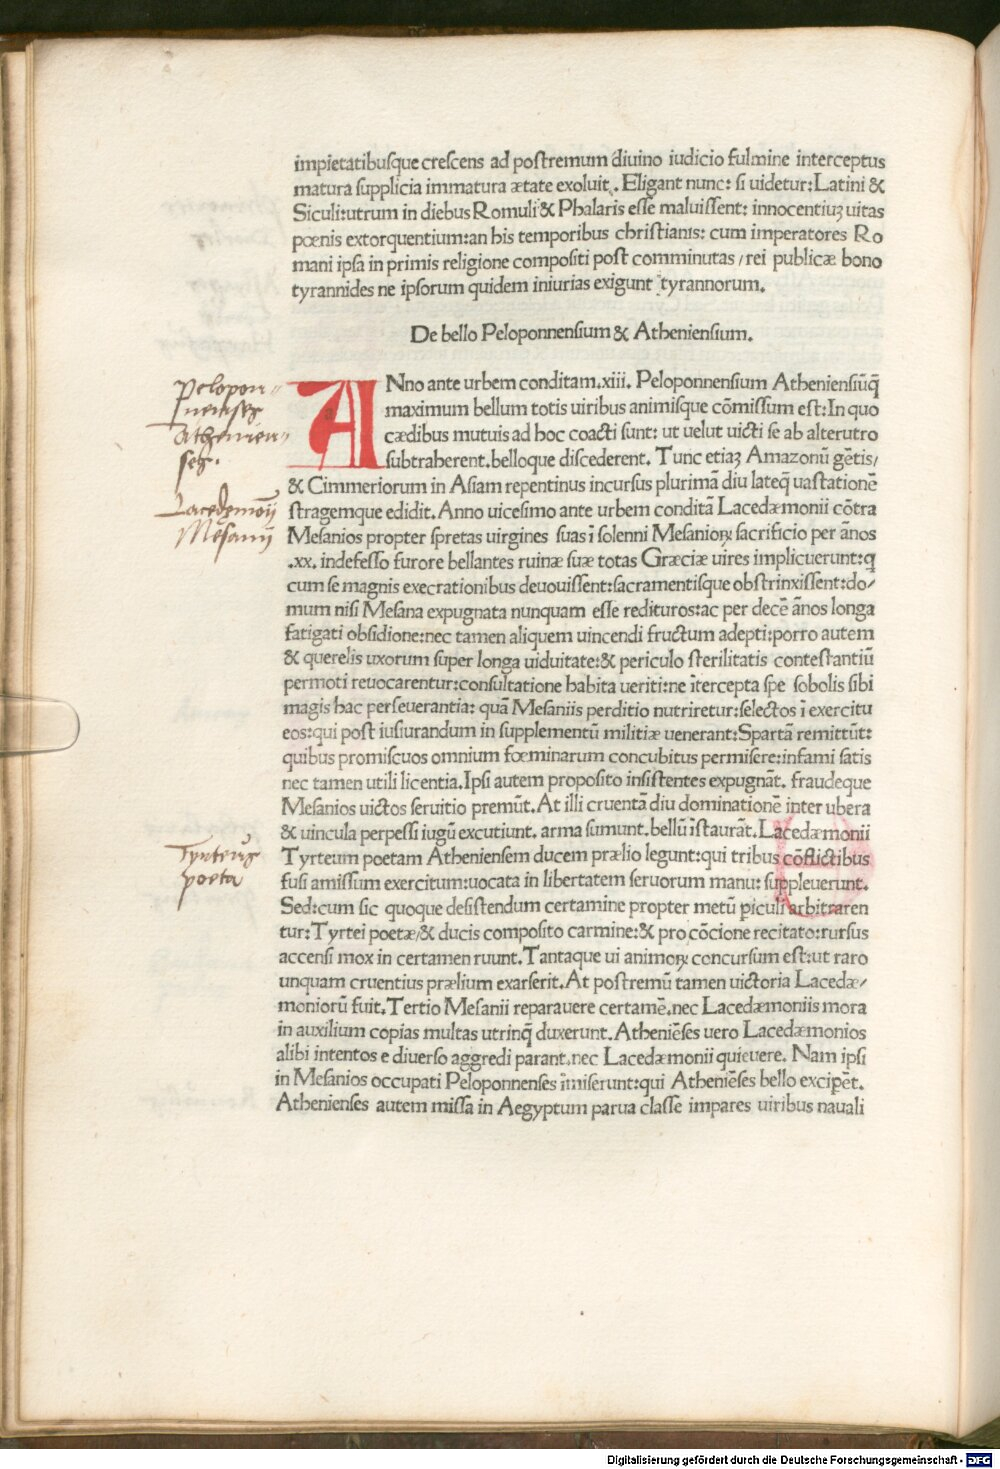 impietatibusque crescens ad postremum diuino iudicio fulmine interceptus
matura supplicia immatura ætate exoluit. Eligant nunc: si uidetur: Latini &
Siculi: utrum in diebus Romuli & Phalaris esse maluissent: innocentiuꝫ uitas
pœnis extorquentium: an his temporibus christianis: cum imperatores Ro
mani ipsa in primis religione compositi post comminutas / rei publicæ bono
tyrannides ne ipsorum quidem iniurias exigunt tyrannorum.
De bello Peloponnensium & Atheniensium.
ANno ante urbem conditam .xiii. Peloponnensium Atheniensiūq̄
maximum bellum totis uiribus animisque cōmissum est: In quo
cædibus mutuis ad hoc coacti sunt: ut uelut uicti se ab alterutro
subtraherent. belloque discederent. Tunc etiaꝫ Amazonū gētis/
& Cimmeriorum in Asiam repentinus incursus plurimā diu lateq̄ uastationē
stragemque edidit. Anno uicesimo ante urbem conditā Lacedæmonii cōtra
Mesanios propter spretas uirgines suas ī solenni Mesanioꝝ sacrificio per ānos
.xx. indefesso furore bellantes ruinæ suæ totas Græciæ uires implicuerunt: q
cum se magnis execrationibus deuouissent: sacramentisque obstrinxissent: do/
mum nisi Mesana expugnata nunquam esse redituros: ac per decē ānos longa
fatigati obsidione: nec tamen aliquem uincendi fructum adepti: porro autem
& querelis uxorum super longa uiduitate: & periculo sterilitatis contestantiū
permoti reuocarentur: consultatione habita ueriti: ne ītercepta spe sobolis sibi
magis hac perseuerantia: quā Mesaniis perditio nutriretur: selectos ī exercitu
eos: qui post iusiurandum in supplementū militiæ uenerant: Spartā remittūt:
quibus promiscuos omnium fœminarum concubitus permisere: infami satis
nec tamen utili licentia. Ipsi autem proposito insistentes expugnāt. fraudeque
Mesanios uictos seruitio premūt. At illi cruentā diu dominationē inter ubera
& uincula perpessi iugū excutiunt. arma sumunt. bellū īstaurāt. Lacedæmonii
Tyrteum poetam Atheniensem ducem prælio legunt: qui tribus cōflictibus
fusi amissum exercitum: uocata in libertatem seruorum manu: suppleuerunt.
Sed: cum sic quoque desistendum certamine propter metū piculi arbitraren
tur: Tyrtei poetæ/& ducis composito carmine: & pro cōcione recitato: rursus
accensi mox in certamen ruunt. Tantaque ui animoꝝ concursum est: ut raro
unquam cruentius prælium exarserit. At postremū tamen uictoria Lacedæ/
moniorū fuit. Tertio Mesanii reparauere certamē. nec Lacedæmoniis mora
in auxilium copias multas utrinq̄ duxerunt. Atheniēses uero Lacedæmonios
alibi intentos e diuerso aggredi parant. nec Lacedæmonii quieuere. Nam ipsi
in Mesanios occupati Peloponnenses īmiserunt: qui Atheniēses bello excipēt.
Athenienses autem missa in Aegyptum parua classe impares uiribus nauali
Pelopon=
nenses
Athenien=
ses.
Lacedemonij
Mesanij
Tyrteus
poeta
Digitalisierung gefördert durch die Deutsche Forschungsgemeinschaft - DFG